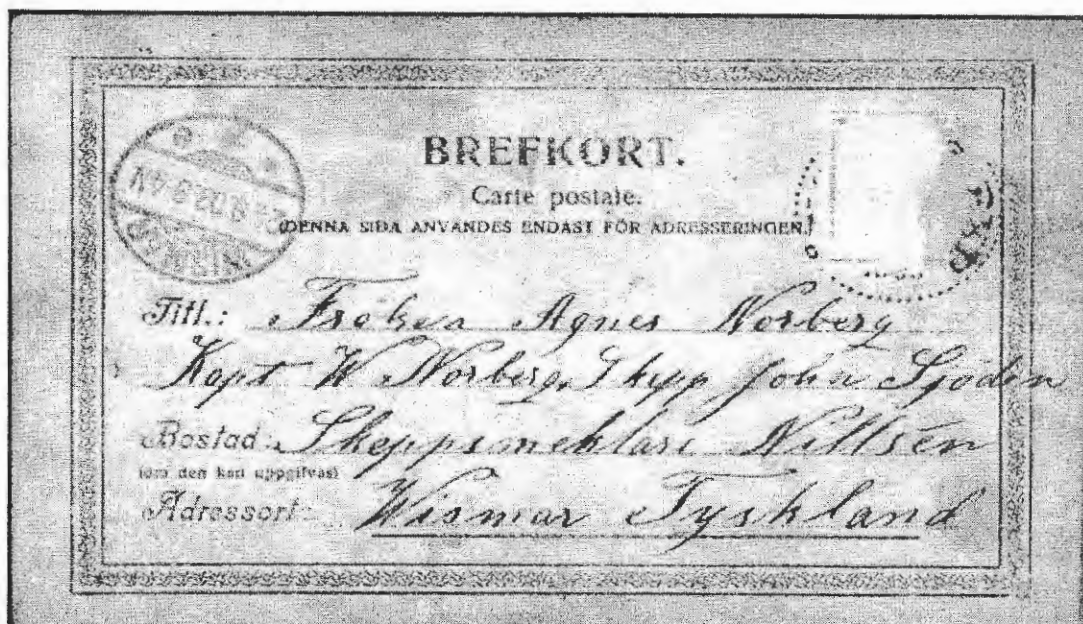 BREFKORT.
Carte postale.
(DENNA SIDA ANVÄNDES ENDAST FÖR ADRESSERINGEN.)
Titl.: Fröken Agnes Norberg
Kapt W Norberg, Skepp John Sjödin
Bostad: Skeppsmeklare Nillsén
(om den kan uppgifvas)
Adressort: Wismar Tyskland
WISMAR